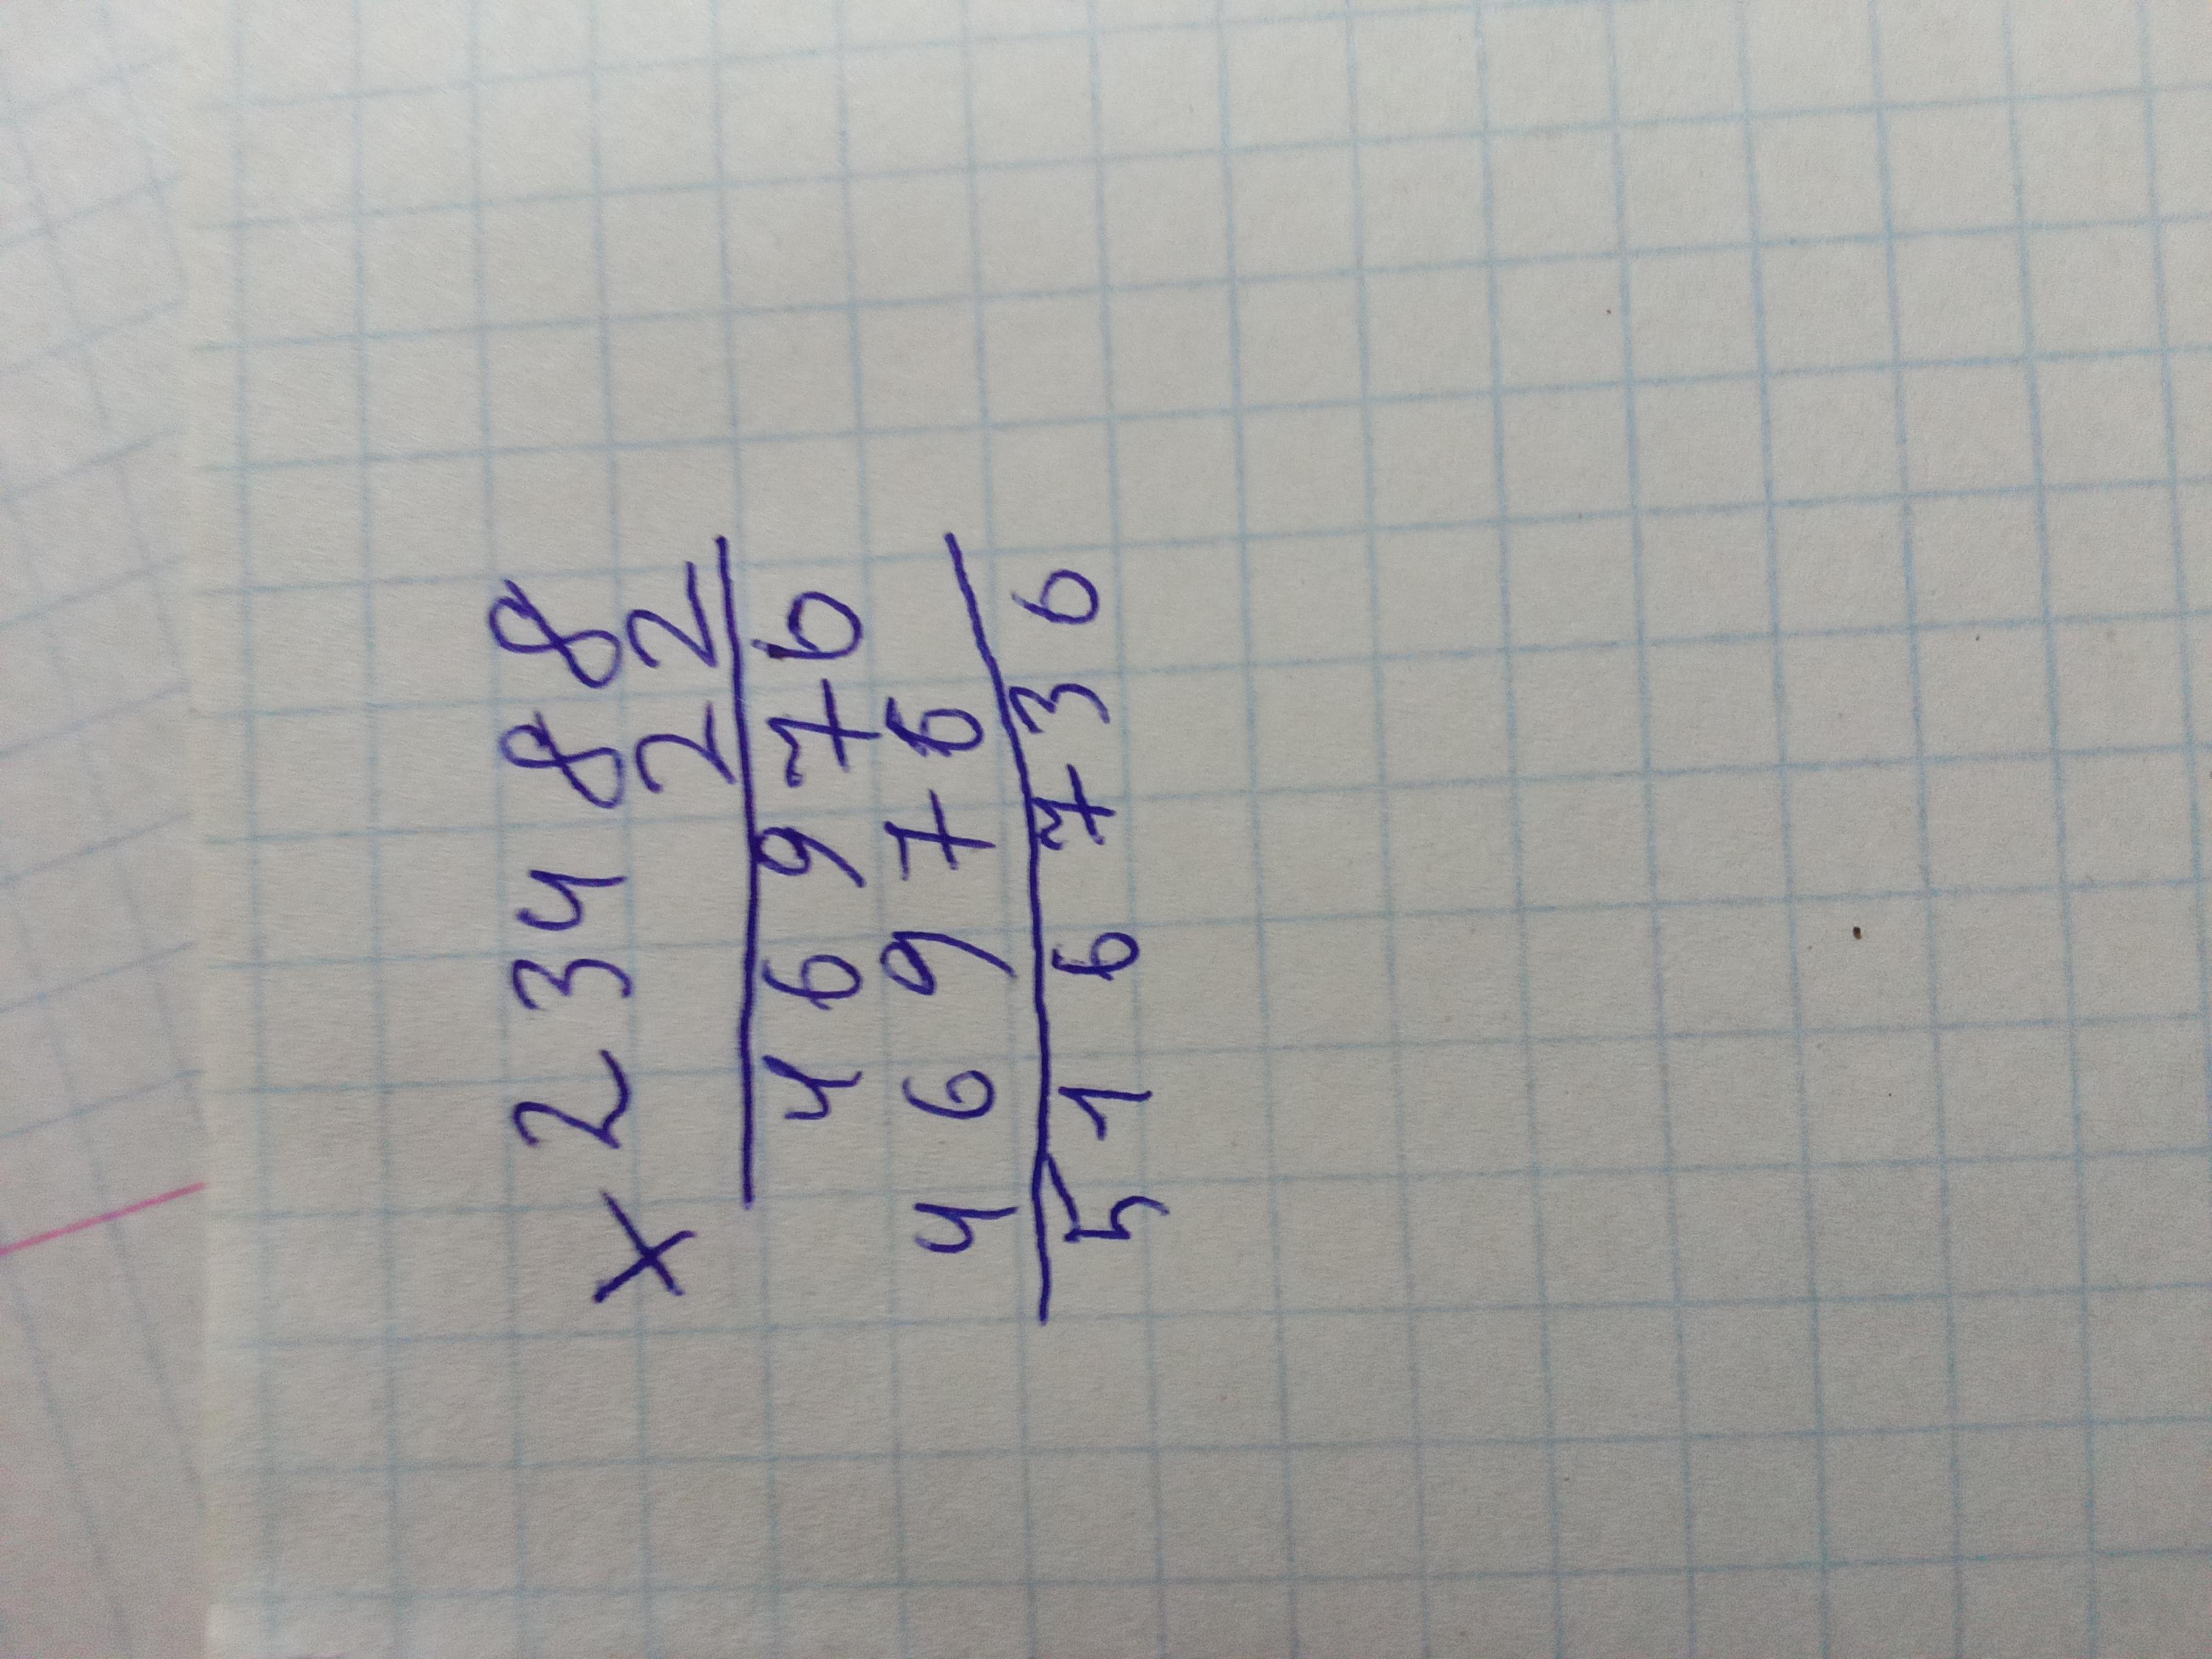 × 23488
22
46976
46976
516736